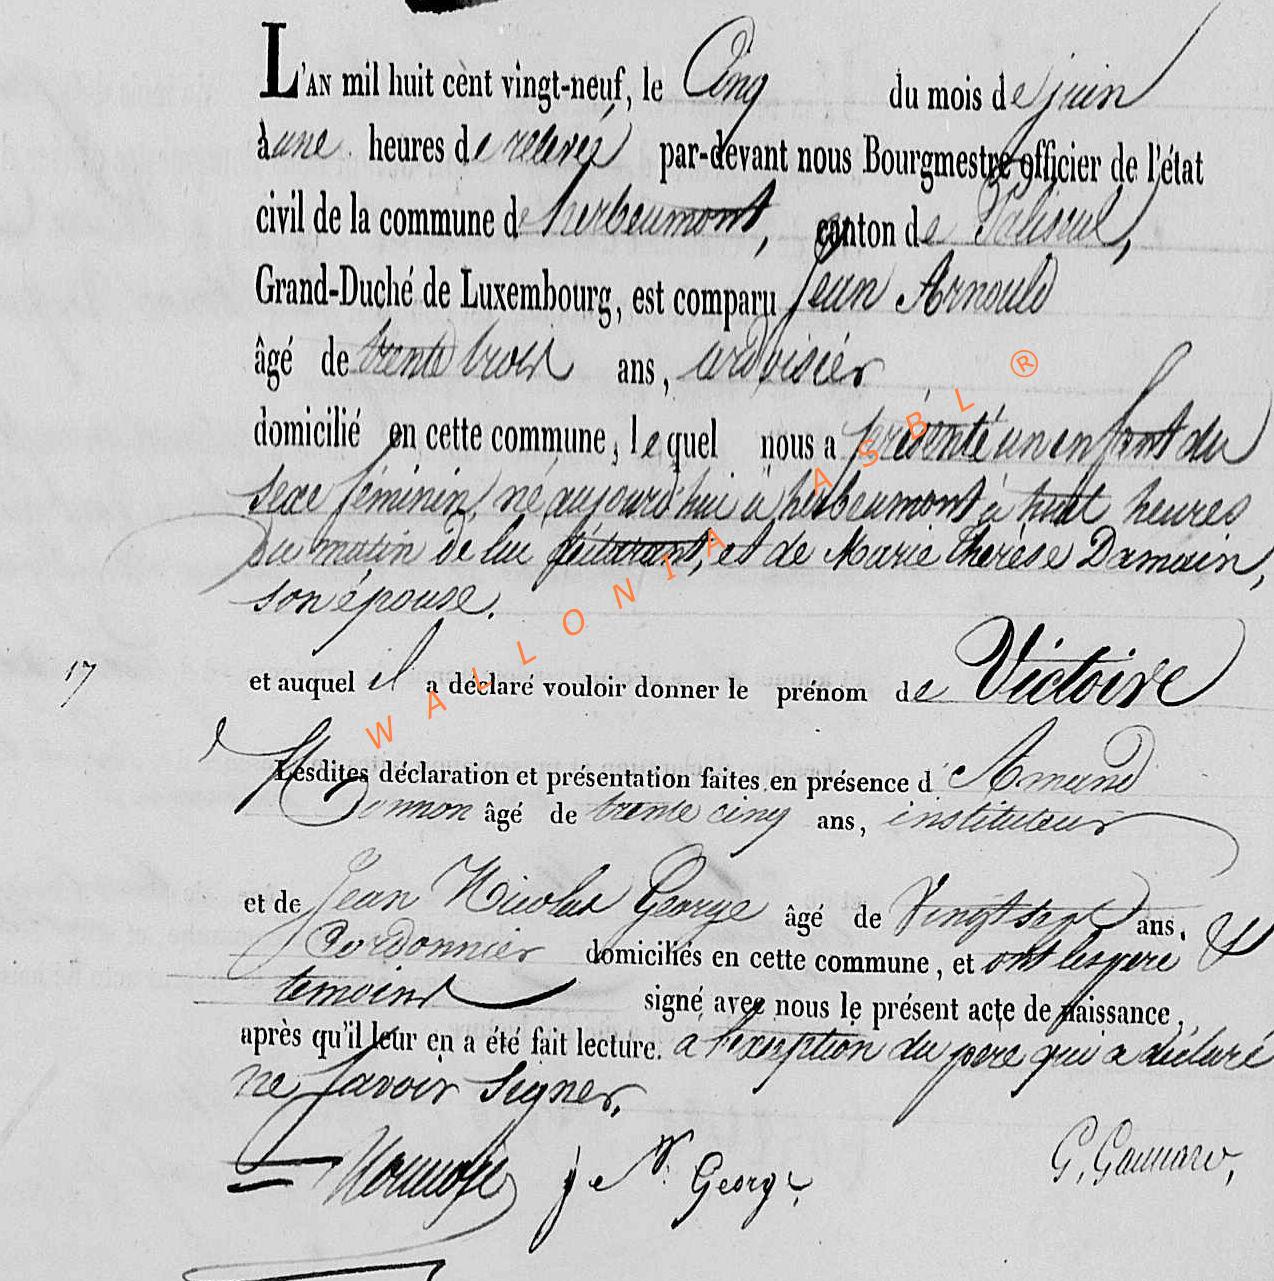 L'AN mil huit cent vingt-neuf, le Cinq du mois de juin
à une heures de relevé par-devant nous Bourgmestre officier de l'état
civil de la commune de herbeumont, canton de Paliseul,
Grand-Duché de Luxembourg, est comparu Jean Arnould
âgé de trente trois ans, ardoisier
domicilié en cette commune, lequel nous a présenté un enfant du
sexe féminin, né aujourd'hui à herbeumont à huit heures
du matin de lui déclarant, et de Marie thérèse Damain,
son épouse.
17 et auquel il a déclaré vouloir donner le prénom de Victoire
Lesdites déclaration et présentation faites en présence d'Amand
âgé de trente cinq ans, instituteur
et de Jean Nicolas George âgé de Vingt sept ans,
Cordonnier domiciliés en cette commune, et ont les pere &
temoins signé avec nous le présent acte de naissance,
après qu'il leur en a été fait lecture. a l'exception du pere qui a déclaré
ne savoir signer.
J. N. George
WALLONIA ASBL ®